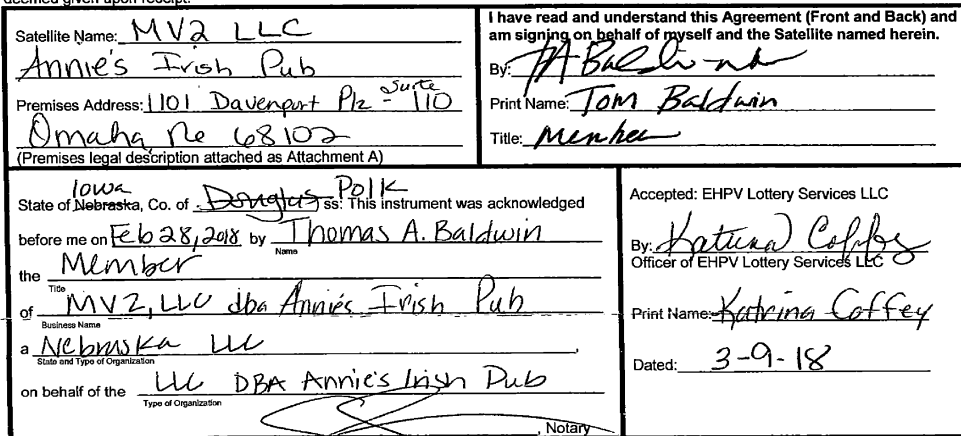 deemed given upon receipt.
Satellite Name: MV2 LLC
Annie's Irish Pub
Premises Address: 1101 Davenport Plz - Suite 110
Omaha, Ne 68102
(Premises legal description attached as Attachment A)
I have read and understand this Agreement (Front and Back) and
am signing on behalf of myself and the Satellite named herein.
By: TA Baldwin
Print Name: Tom Baldwin
Title: Member
Iowa Polk
State of Nebraska, Co. of Douglas ss: This instrument was acknowledged
before me on Feb 28, 2018 by Thomas A. Baldwin
Name
the Member
Title
of MV2, LLC dba Annie's Irish Pub
Business Name
a Nebraska LLC
State and Type of Organization
on behalf of the LLC DBA Annie's Irish Pub
Type of Organization
, Notary
Accepted: EHPV Lottery Services LLC
By: Katrina Coffey
Officer of EHPV Lottery Services LLC
Print Name: Katrina Coffey
Dated: 3-9-18